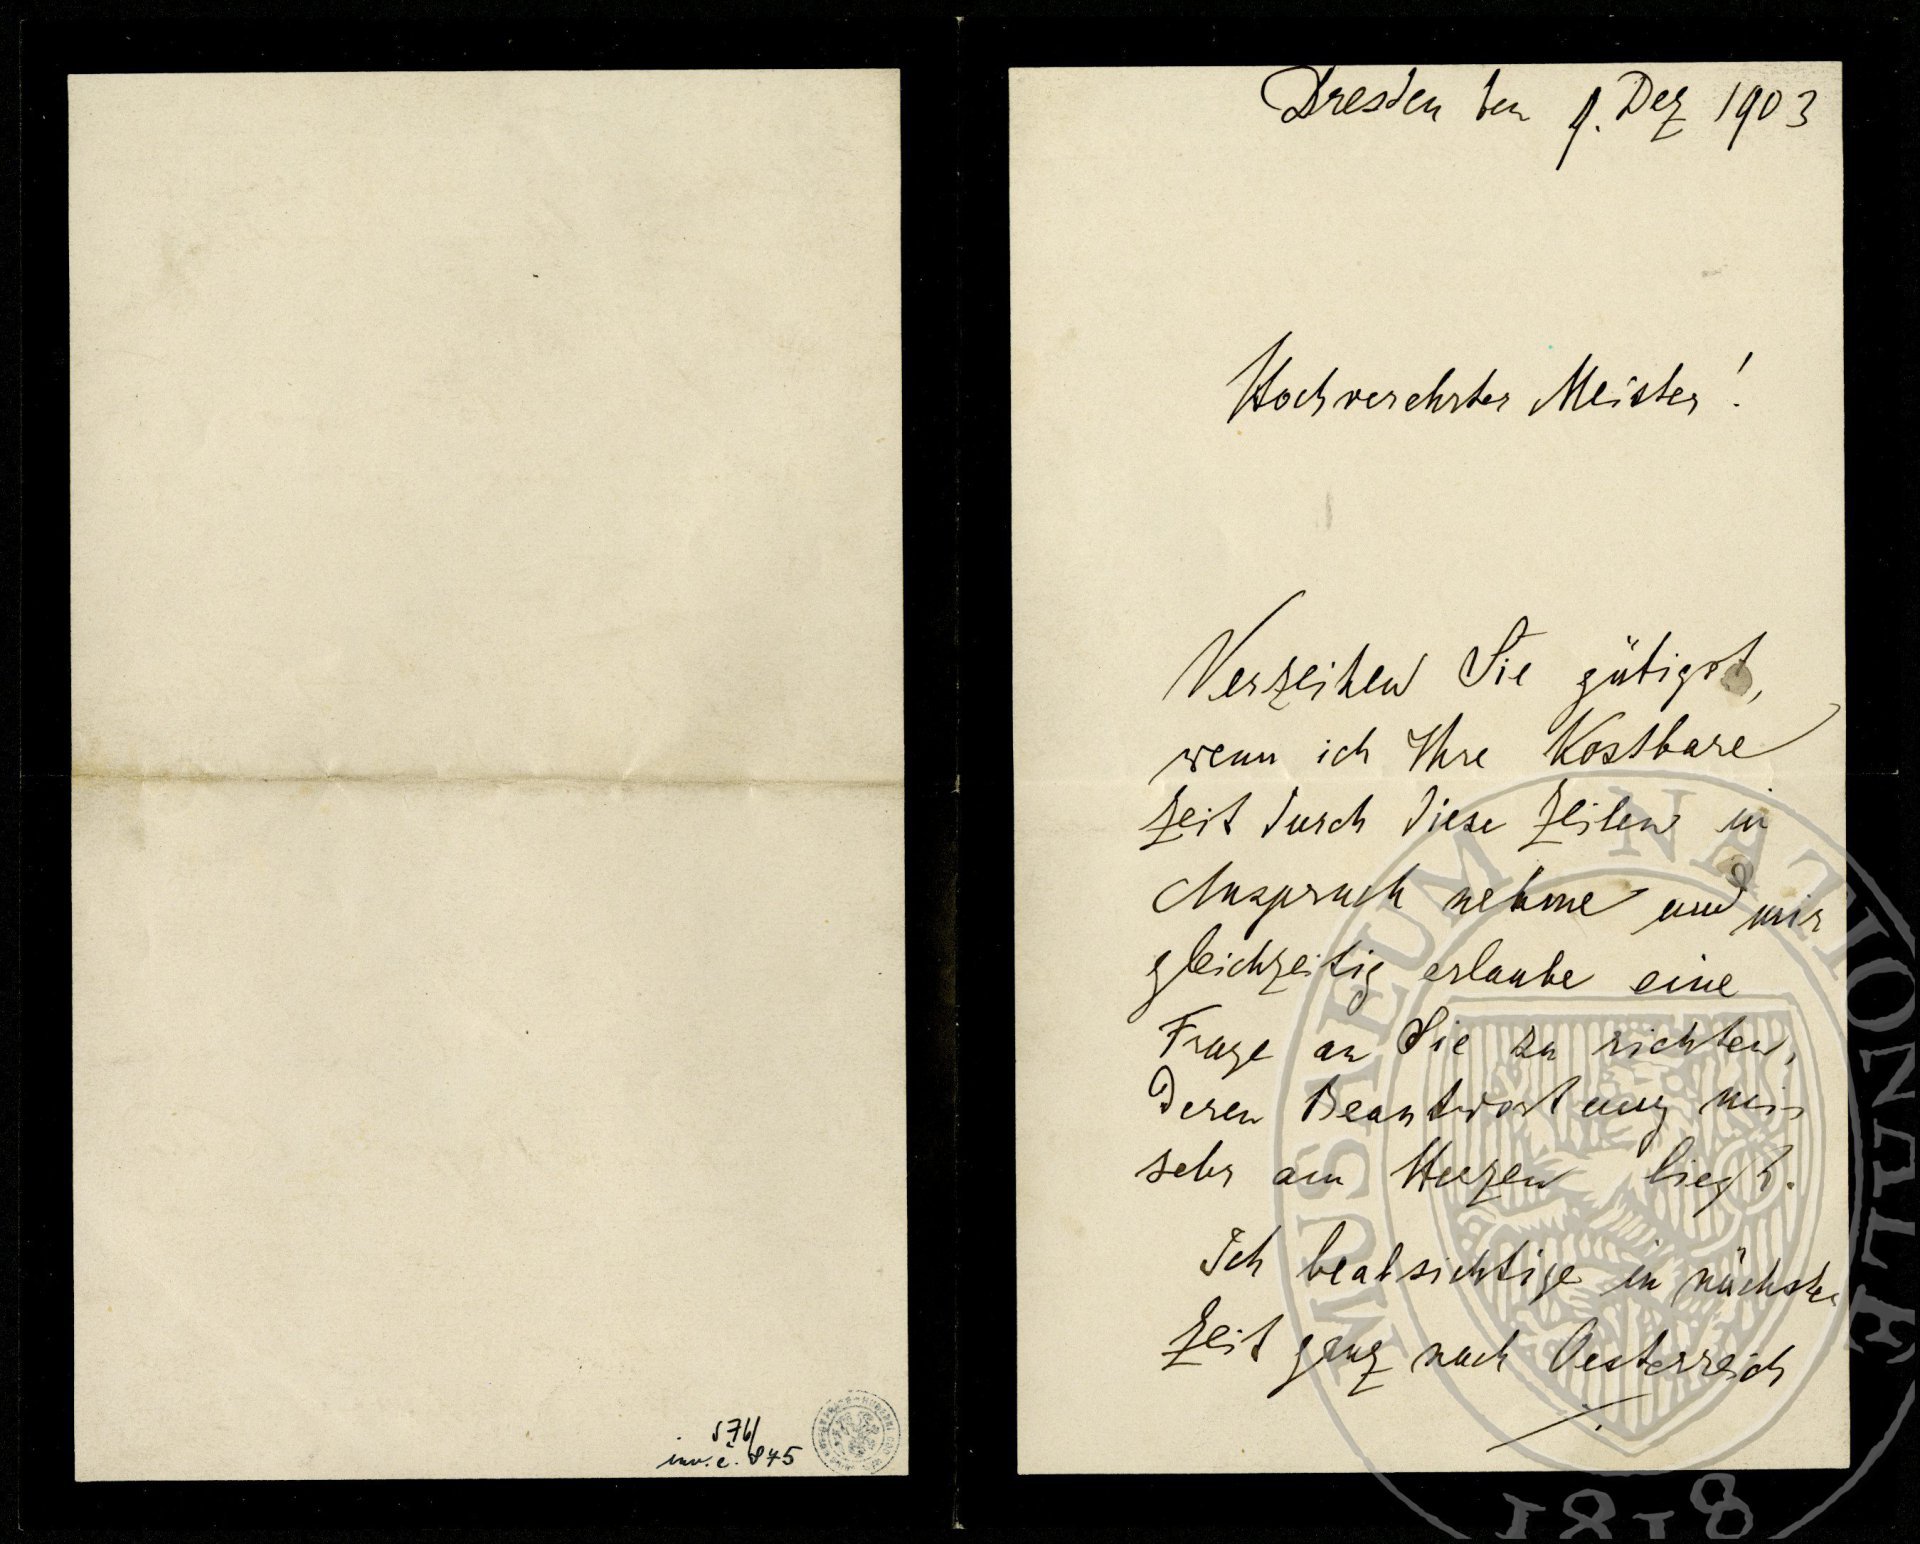 inv. č. 845
Dresden den 9. Dez 1903
Hochverehrter Meister!
Verzeihen Sie gütigst,
wenn ich Ihre Kostbare
Zeit durch diese Zeilen in
Anspruch nehme und mir
gleichzeitig erlaube eine
Frage an Sie zu richten,
deren Beantwortung mir
sehr am Herzen liegt.
Ich beabsichtige in nächster
Zeit ganz nach Oesterreich
./.
MUSAEUM NATIONALE
1818